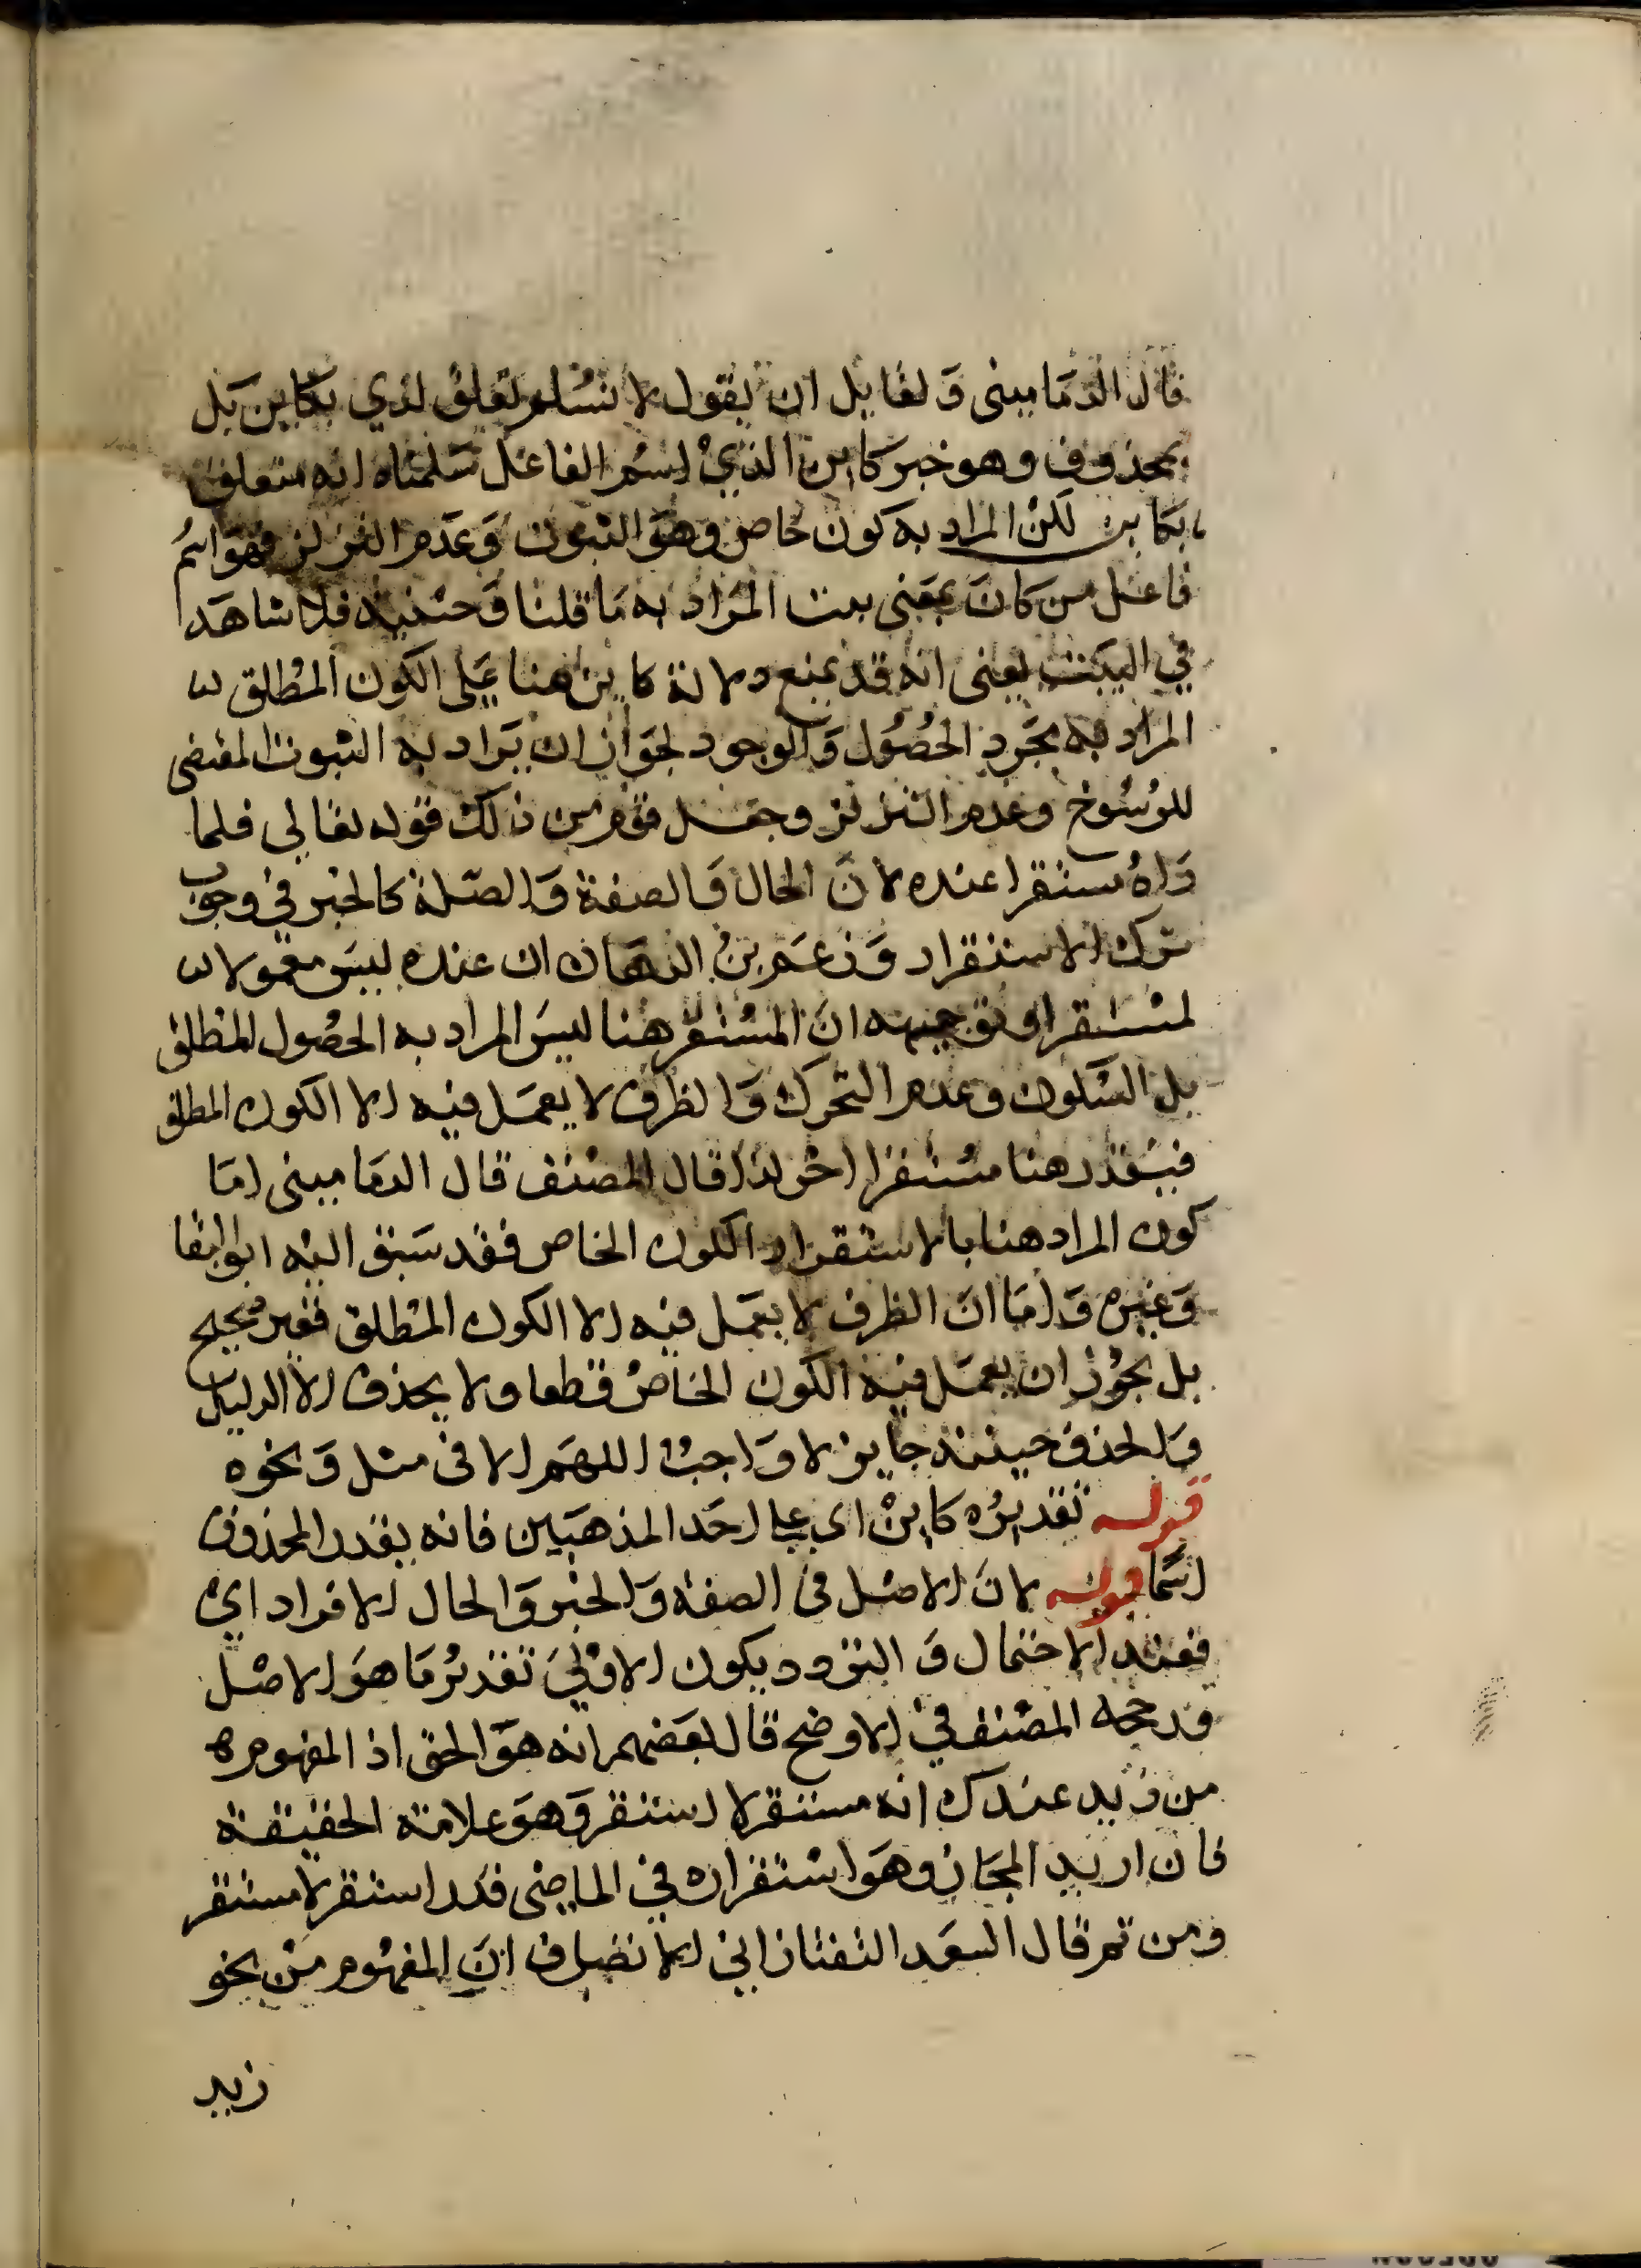 قال الدَمَاميني وَلقايل ان يقول لا نسُلم تعلق لدي بكاين بَل
بمحذوف وهو خبر كاين الذيْ اسمُ الفاعل سَلمناه انه متعلق
بكاين لكنْ المراد به كون خاص وهوَ الثبوت وَعَدم التزلزل فهوَ اسمُ
فاعل من كانَ بمَعْنى ثبت المرَاد به مَا قلنا وَحينيذ فلا شاهَد
في البَيْت يعنى انه قد يمنع دلالة كاين هنا عَلى الكون المطلق لان
المراد به مجَرد الحصُول وَالوجود لجوَاز ان يرَاد به الثبوت المقتضى
للرسُوخ وعدم التزلزل وجعَل قوم من ذلك قوله تعالى فلما
رَاهُ مستقرا عنده لانَ الحال وَالصفة وَالصّلة كالخبر في وجوب
ترك الاستقرار وَزعَم بنُ الدهَان ان عنده ليسَ معمولا
لمستقرا وتوجيهه انَ المسْتقر هنا ليسَ المراد به الحصُول المطلق
بل السّكون وعدم التحرك وَالظرف لا يعمَل فيه الا الكون المطلق
فيقدر هنا مسْتقرا اخر لذا قال المصنف قال الدمَاميني امَا
كون المراد هنا بالاستقرار الكون الخاص فقد سَبق اليْه ابو البقا
وَغيره وَامَا انَ الظرف لا يعمَل فيه الا الكون المطلق فغير صحيح
بل يجُوز ان يعمَل فيه الكون الخاصُ قطعا ولا يحذف الا لدليل
وَالحذف حينئذ جايز لا وَاجبُ اللهَم الا فى مثل وَنحوه
قوله تقديرُه كاينْ اي على احَد المذهبَين فانه يقدر المحذوف
اسَما قوله لانَ الاصْل فى الصفة وَالخبر وَالحال الافراد ايْ
فعند الاحتمال وَالتردد يكون الاوْليَ تقديرُ مَا هوَ الاصْل
ورجحه المصَنف في الاوضح قال بعَضهم انه هوَ الحق اذ المفهوم
من زيد عندك انه مستقر لا استقر وَهوَ علامة الحقيقة
فان اريد المجَاز وهوَ اسْتقراره في الماضي قدر استقر لا مستقر
ومن ثم قال السعَد التفتازاني الانصاف انَ المفهُوم منْ نحو
زيد